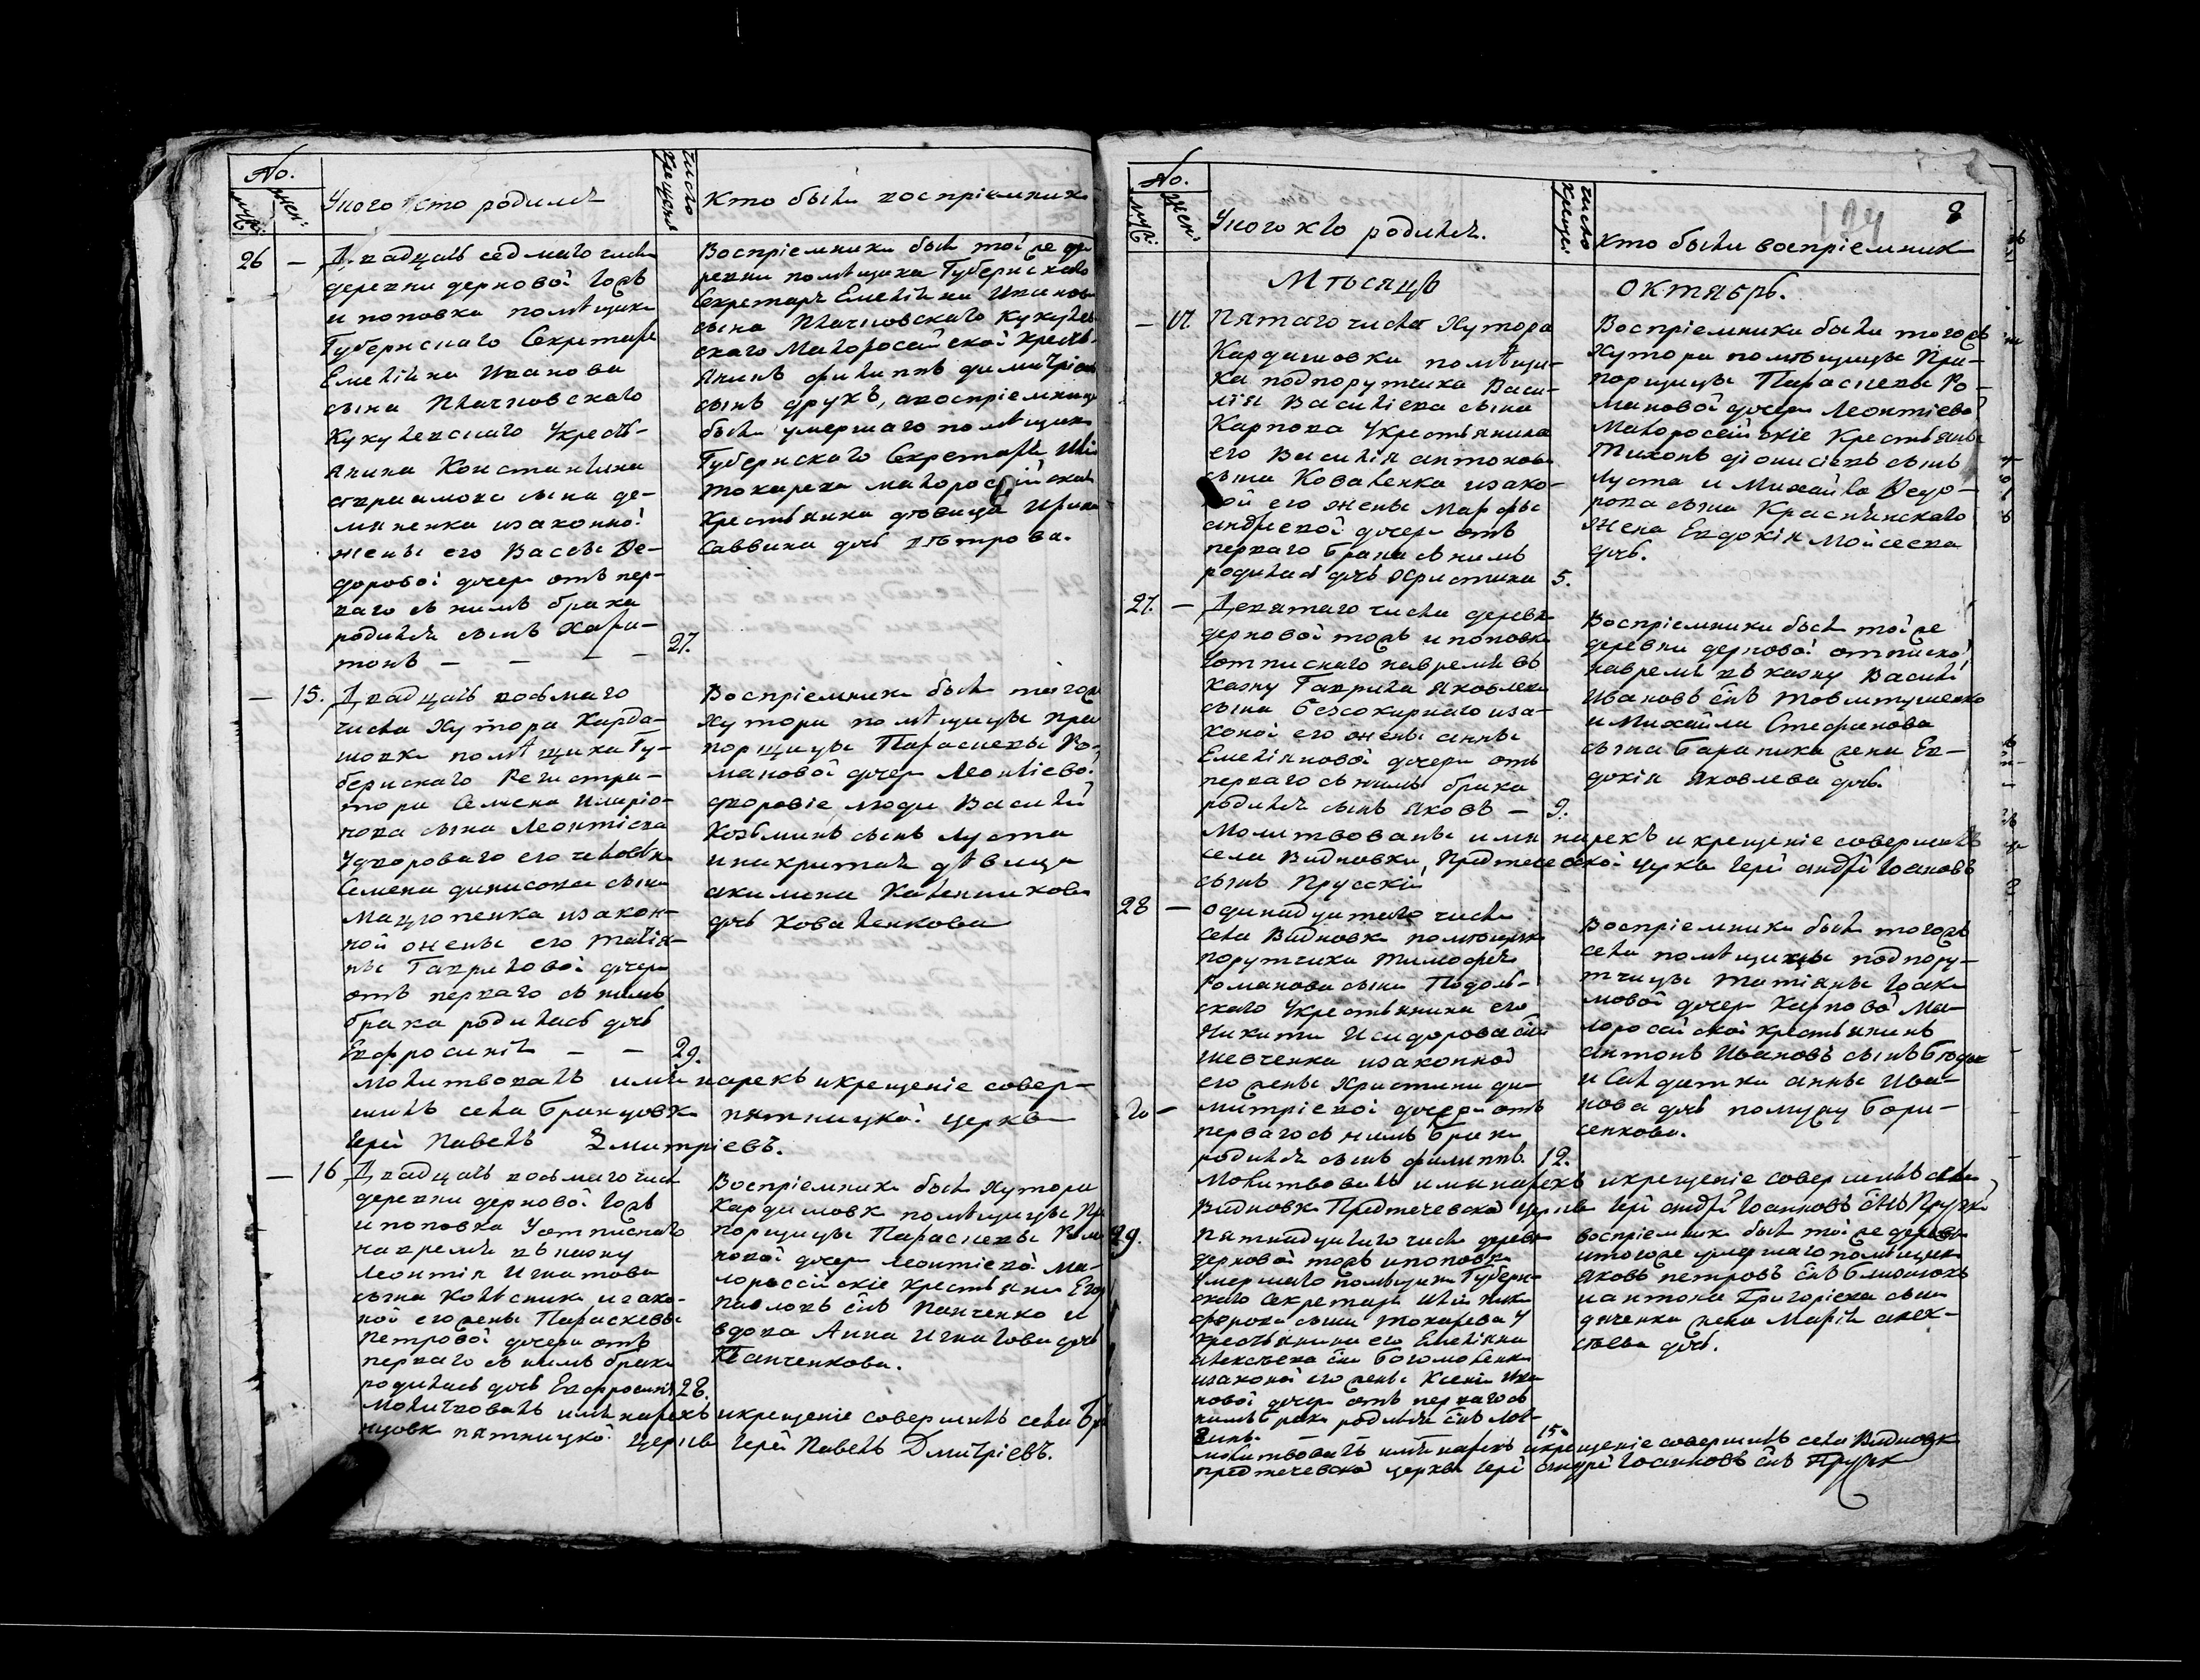 No.
муж:
жен:
У кого кто родился
число
крещения
Кто были восприемники
26 — Двадцать седмаго числа
деревни дерновой тожъ
и поповка помѣщика
Губернскаго Секретаря
Емелiяна Иванова
сына Плачковскаго
Кукулевскаго У крестъ-
янина Константина
аврамова сына де-
мяненка изаконной
жены его Вассы Ѳе-
доровой дочери отъ пер-
ваго съ нимъ брака
родился сынъ Хари-
тонъ — — — — 27.
Восприемники были тойже де-
ревни помѣщика Губернскаго
Секретаря Емелiяна Иванова
сына Плачковскаго Кукулев-
скаго Малоросейской Крестъ-
янинъ филиппъ димитрiевъ
сынъ друхъ, авосприемница
была умершаго помѣщика
Губернскаго Секретаря Илiи
токарева малоросийскаго
Крестьянина дѣвица Ирина
Саввина дочь петрова.
— 15. Двадцать восьмаго
числа Хутора Карда-
шовки помѣщика Гу-
бернскаго Регистра-
тора Семена Илларiо-
нова сына Леонтiева
У двороваго его человѣка
Семена динисова сына
Мацюпенка изакон-
ной жены его татiя-
ны Гавриловой дочери
отъ перваго съ нимъ
брака родилась дочь
Евфросинiя — — 29.
Восприемники были тогожъ
Хутора помѣщицы пра-
порщицы Параскевы Ро-
мановой дочери Леонтiевой
дворовiе люди Василiй
Козминъ сынъ Луста
дѣвица
дочь Коваленкова
молитвовалъ имя нарекъ икрещенiе совер-
шилъ села Бранцовки пятницкой церкви
Iерей Павелъ Дмитрiевъ.
— 16 Двадцать восьмаго числа
деревни дерновой тожъ
и поповка У отписнаго
навремя въ казну
Леонтiя Игнатова
сына Колѣсника изако-
ной его жены Параскевы
Петровой дочери отъ
перваго съ нимъ брака
родилась дочь Евфросинiя 28.
Восприемники были Хутора
Кардашовки помѣщицы Пра-
порщицы Параскевы Рома-
новой дочери Леонтiевой Ма-
лороссiйскiе крестьяни Егоръ
Павловъ снъ Панченко и
вдова Анна Игнатова дочь
Панченкова.
Молитвовалъ имя нарекъ икрещенiе совершилъ села Бра-
нцовки пятницкой церкви Iерей Павелъ Дмитрiевъ.
No.
муж:
жен:
У кого кто родился.
число
крещен:
Кто были восприемники
124
8
Мѣсяцъ октябрь.
— 17. Пятаго числа Хутора
Кардашовки помѣщи-
ка подпорутчика Васи-
лiя Василiева сына
Карпова У крестьянина
его Василiя антонова
сына Коваленка изако-
ной его жены Марфы
андреевой дочери отъ
перваго брака съ нимъ
родилась дочь Христина 5.
Восприемники были тогожъ
Хутора помѣщицы Пра-
порщицы Параскевы Ро-
мановой дочери Леонтiевой
Малоросейскiе Крестьяны
Тихонъ дiонисiевъ сынъ
Луста и Михайла Ѳедо-
рова сына Краснянскаго
жена Евдокiя Мойсеева
дочь.
27. — Девятаго числа деревни
дерновой тожъ и поповки
У отписнаго навремя въ
казну Гаврила Яковлева
сына безсокирнаго иза-
коной его жены анны
Емелiяновой дочери отъ
перваго съ нимъ брака
родился сынъ Яковъ — 9.
Восприемники были тойже
деревни дерновой отписной
навремя въ казну Василiй
Ивановъ снъ товмтушенко
и Михайла Стефанова
сына баранника жена Ев-
докiя Яковлева дочь.
Молитвованы имя нарекъ и крещенiе совершилъ
села Видновки, Предтечевской церкви Iерей андрей Iоановъ
сынъ Прусскiй
28 — одинадцатаго числа
села Видновки помѣщика
порутчика тимофея
Романова сына Подоль-
скаго У крестьянина его
Никиты Исидорова сна
Шевченка изаконной
его жены Христины ди-
митрiевой дочери отъ
перваго съ нимъ брака
родился сынъ филиппъ. 12.
Восприемники были тогожъ
села помѣщицы подпору-
тчицы татiяны Iоаки-
мовой дочери Карповой Ма-
лоросейской крестьянинъ
антонъ Ивановъ сынъ
и Салдатка анна Ива-
нова дочь помужу Бори-
сенкова.
Молитвовалъ имя нарекъ икрещенiе совершилъ села
Видновки Предтечевской церкви Iерей андрей Iоанновъ снъ Прускiй
29. Пятнадцатаго числа деревни
дерновой тожъ ипоповки
Умершаго помѣщика Губерн-
скаго Секретаря Илiи Ники-
форова сына токарева У
крестьянина его Емелiяна
алексѣева сна богомоленка
изаконой его жены Ксенiи Ива-
новой дочери отъ перваго съ
нимъ брака родился снъ Лон-
гинъ. — — 15.
восприемники были тойже деревни
итогоже умершаго помѣщика
Яковъ петровъ снъ Близнюкъ
иантона Григорiева сына
дяченка жена Марiя алек-
сѣева дочь.
молитвовалъ имя нарекъ икрещенiе совершилъ села Видновки
предтечевской церкви Iерей андрей Iоанновъ снъ Пруски